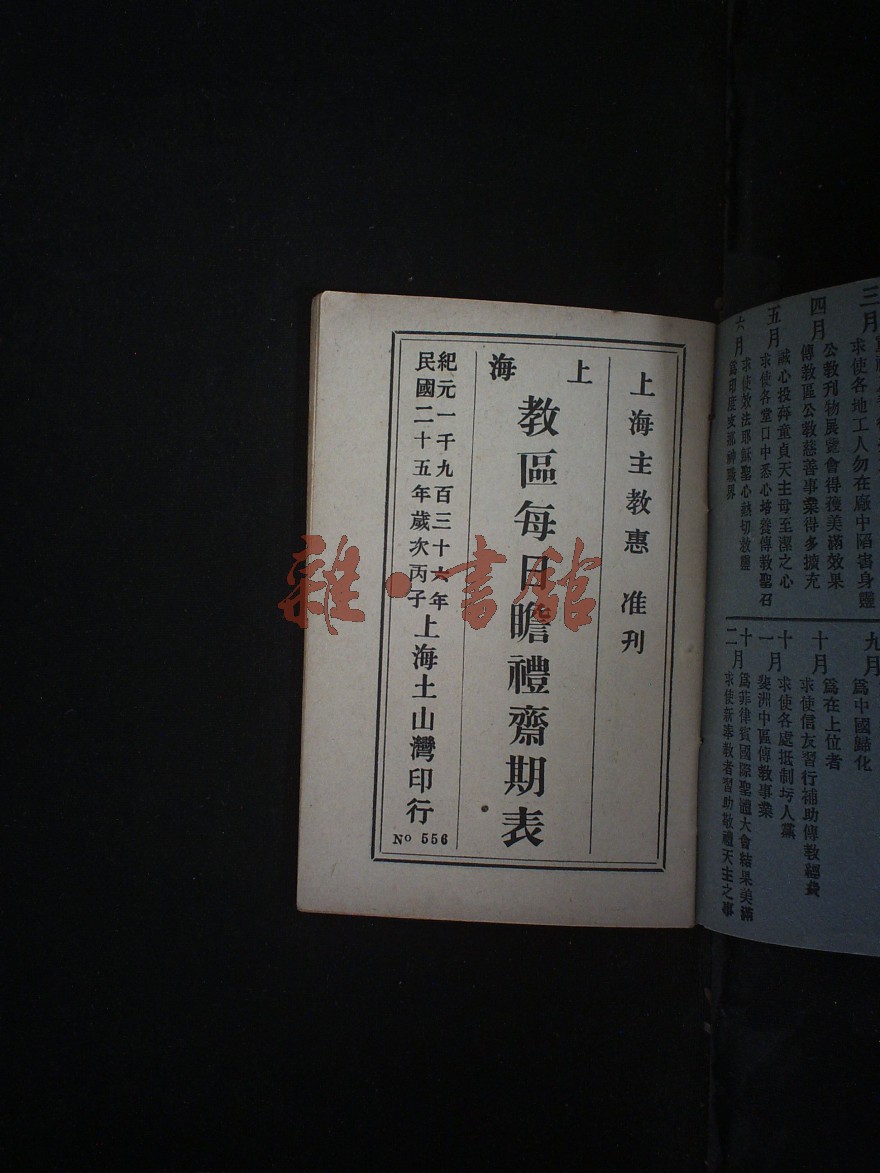 三月
求使各地工人勿在廠中陷害身靈
四月
公教刊物展覽會得獲美滿效果
傳教區公教慈善事業得多擴充
五月
誠心投奔童貞天主母至潔之心
求使各堂口中悉心培養傳教聖召
六月
求使效法耶穌聖心熱切救靈
爲印度
九月
爲中國歸化
十月
爲在上位者
求使信友習行補助傳教經費
十一月
求使各處抵制
斐洲中區傳教事業
十二月
爲菲律賓國際聖體大會結果美滿
求使新奉教者習助敬禮天主之事
上海主教惠 准刊
上海
教區每日瞻禮齋期表
紀元一千九百三十六年
民國二十五年歲次丙子
上海土山灣印行
No 556
雜·書館